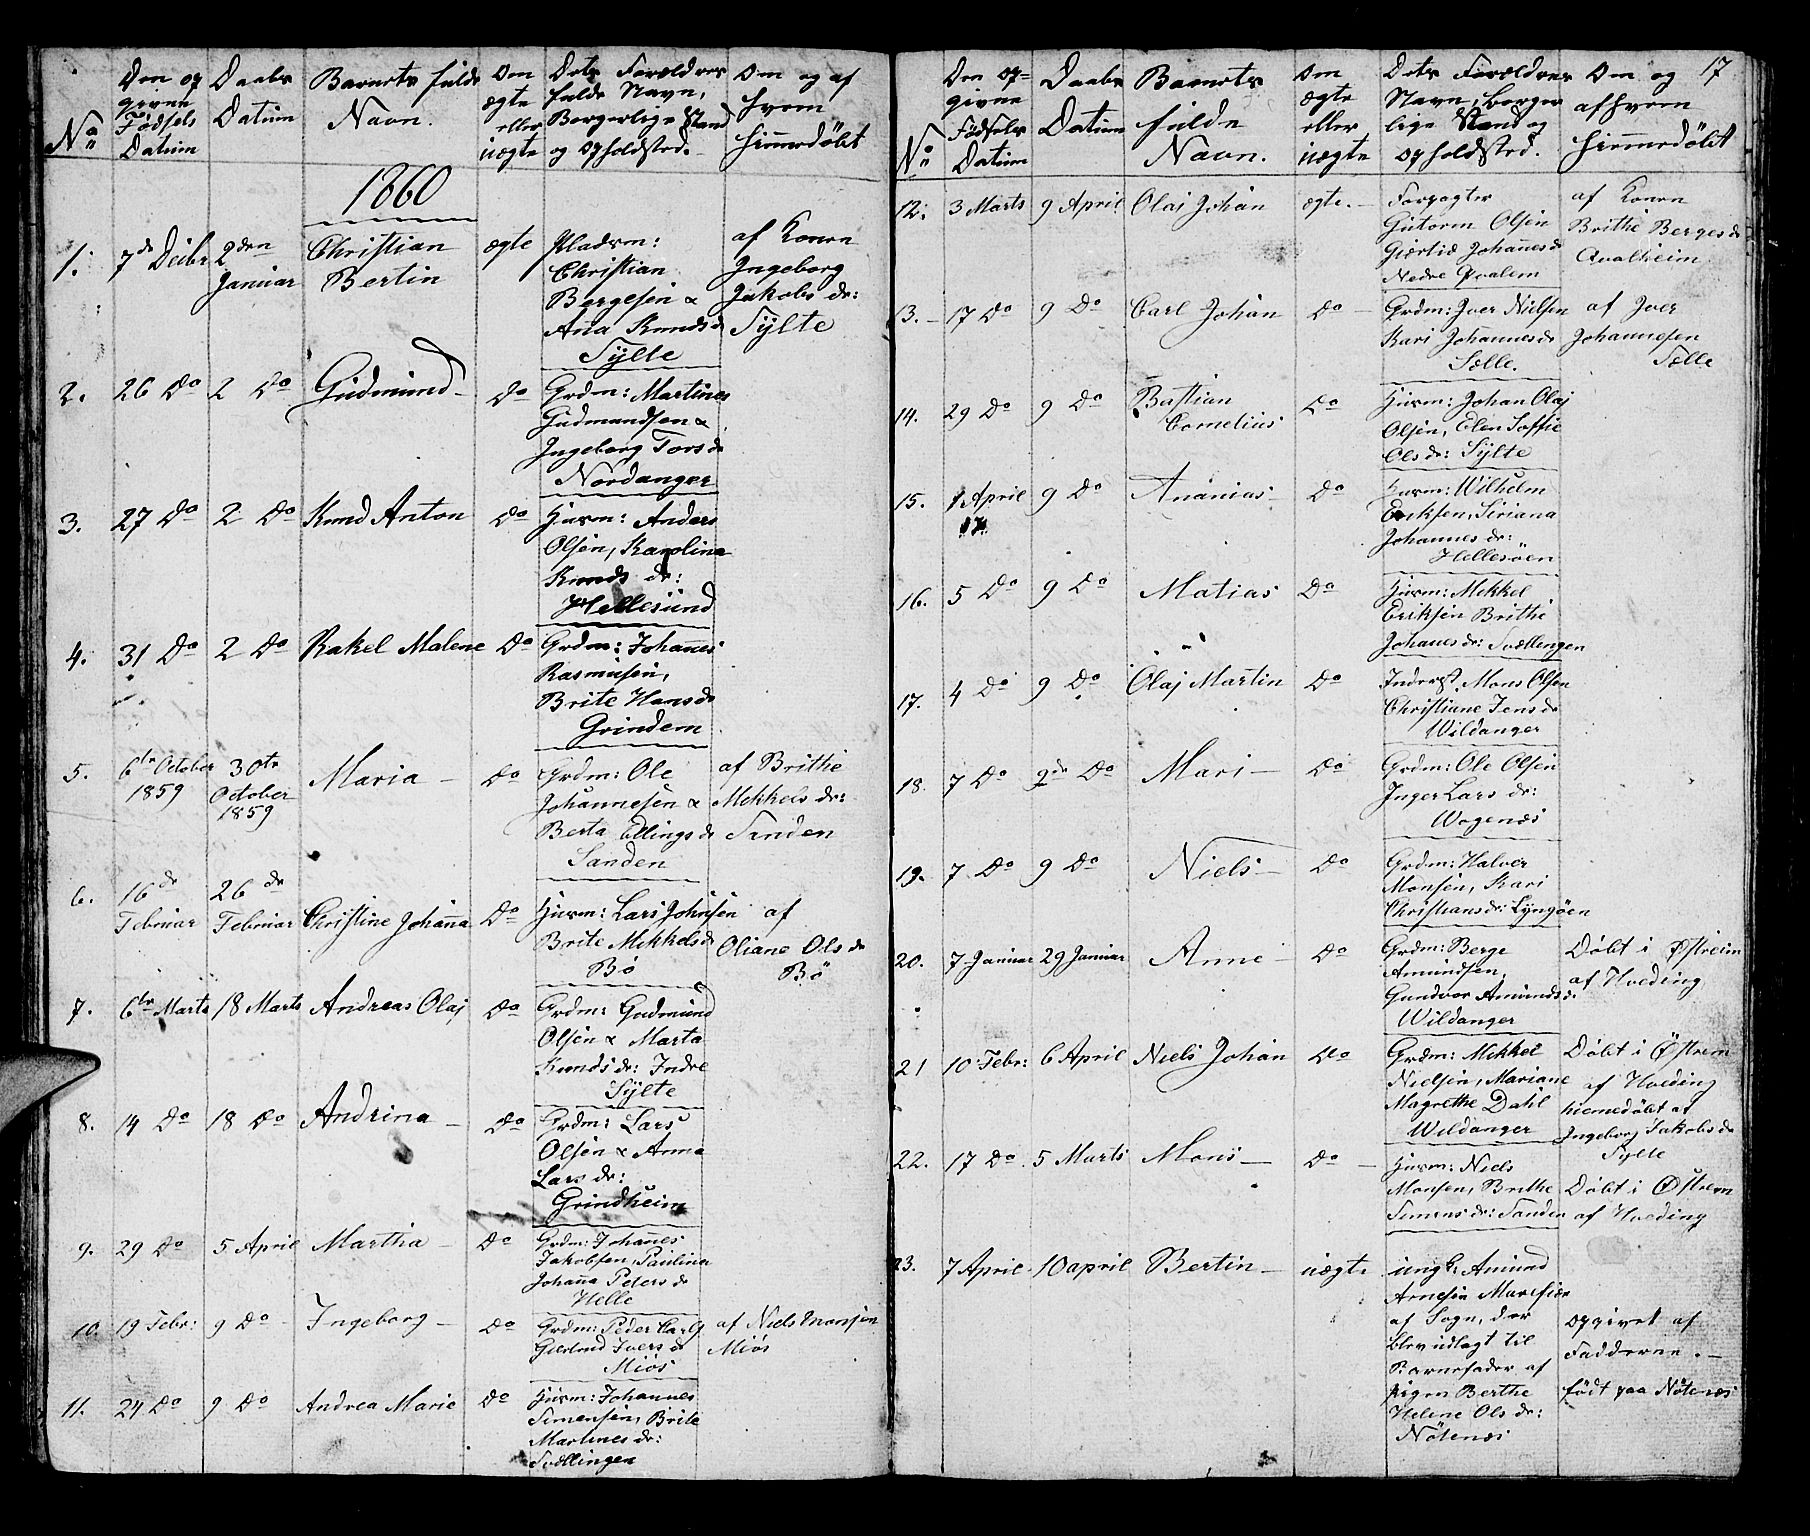 No
Den op
givne
Fødsels
Datum
Daabs
Datum
Barnets fulde
Navn.
Om
ægte
eller
uægte
Dets Forældres
fulde Navn,
Borgerlige Stand
og opholdsted.
Om og af
hvem
hjemmedöbt
1860
1.
7de Decbr
2den
Januar
Christian
Bertin
ægte
Pladsm:
Christian
Bergesen &
Aña Knudsd
Sylte
af Konen
Ingeborg
Jakobs dr:
Sylte
2.
26 Do
2 Do
Gudmund
Do
Grdm: Martines
Gudmundsen &
Ingeborg Torsdr
Nordanger
3.
27 Do
2 Do
Knud Anton
Do
Huusm: Anders
Olsen, Karolina
Knuds dr:
Hellesund
4.
31 Do
2 Do
Rakel Malene
Do
Grdm: Johañes
Rasmusen,
Brite Hansdr
Grindem
5.
6te October
1859
30te
October
1859
Maria
Do
Grdm: Ole
Johannesen &
Berta Ellingsdr
Sanden
af Brithe
Mekkels dr:
Sanden
6.
16de
Februar
26de
Februar
Christine Johaña
Do
Huusm: Lars Johnsen
Brite Mekkelsdr
Bö
af
Oliane Olsdr
Bö
7.
6te Marts
18 Marts
Andreas Olaj
Do
Grdm: Gudmund
Olsen & Marta
Knudsdr: Indre
Sylte
8.
14 Do
18 Do
Andrina
Do
Grdm: Lars
Olsen & Anna
Lars dr:
Grindheim
9.
29 Do
5 April
Martha
Do
Grdm: Johañes
Jakobsen, Paulina
Johaña Pedersdr
Helle
10.
19 Febr:
9 Do
Ingeborg
Do
Grdm: Peder Carls
Gierterud Ivers dr
Miös
af Niels Monsen
Miös
11.
24 Do
9 Do
Andrea Marie
Do
Huusm: Johannes
Simensen, Brite
Martines dr:
Svællingen
17
No
Den op-
givne
Fødsels
Datum
Daabs
Datum
Barnets
fulde
Navn.
Om
ægte
eller
uægte
Dets Forældres
Navn, borger
lige Stand og
opholdsted.
Om og
af hvem
hjemmedöbt
12.
3 Marts
9 April
Olai Johan
ægte.
Forpagter
Gutorm Olsen
Giertrud Johañesdr
Nedre Qvalem
af Konen
Brithe Bergesdr
Qvalheim
13.
17 Do
9 Do
Carl Johan
Do
Grdm: Iver Nielsen
Kari Johannesdr
Sælle.
af Iver
Johannesen
Sælle
14.
29 Do
9 Do
Bastian
Cornelius
Do
Huusm: Johan Olaj
Olsen, Elen Soffie
Olsdr: Sylte
15.
1 April
17.
9 Do
Ananias
Do
Huusm: Wilhelm
Eriksen, Siriana
Johannes dr:
Hellesöen
16.
5 Do
9 Do
Matias
Do
Huusm: Mekkel
Eriksen Brithe
Johañesdr: Svællengen
17.
4 Do
9 Do
Olaj Martin
Do
Inderst Mons Olsen
Christiane Jensdr
Wildanger
18.
7 Do
9de Do
Mari
Do
Grdm: Ole Olsen
Inger Lars dr:
Wogenæs
19.
7 Do
9 Do
Niels
Do
Grdm: Halver
Monsen, Kari
Christiansdr: Lyngöen
20.
7 Januar
29 Januar
Anne
Do
Grdm: Berge
Amundsen,
Gundvor Amundsdr
Wildanger
Döbt i Östreim
af Hveding
21
10 Febr:
6 April
Niels Johan
Do
Grdm: Mekkel
Nielsen, Mariane
Magrethe Dahl
Wildanger
Döbt i Östrem
af Hveding
hiemedöbt af
Ingeborg Jakobsdr
Sylte
22.
17 Do
5 Marts
Mons
Do
Huusm: Niels
Monsen, Brithe
Simensdr: Sanden
Döbt i Östrem
af Hveding
23.
7 April
10 april
Bertin
uægte
ungk: Amund
Arnesen
af Sogn, der
blev udlagt til
Barnefader af
pigen Berthe
Helene Ols dr:
Nötenæs
opgivet af
Fadderne.
født paa Nötenæs